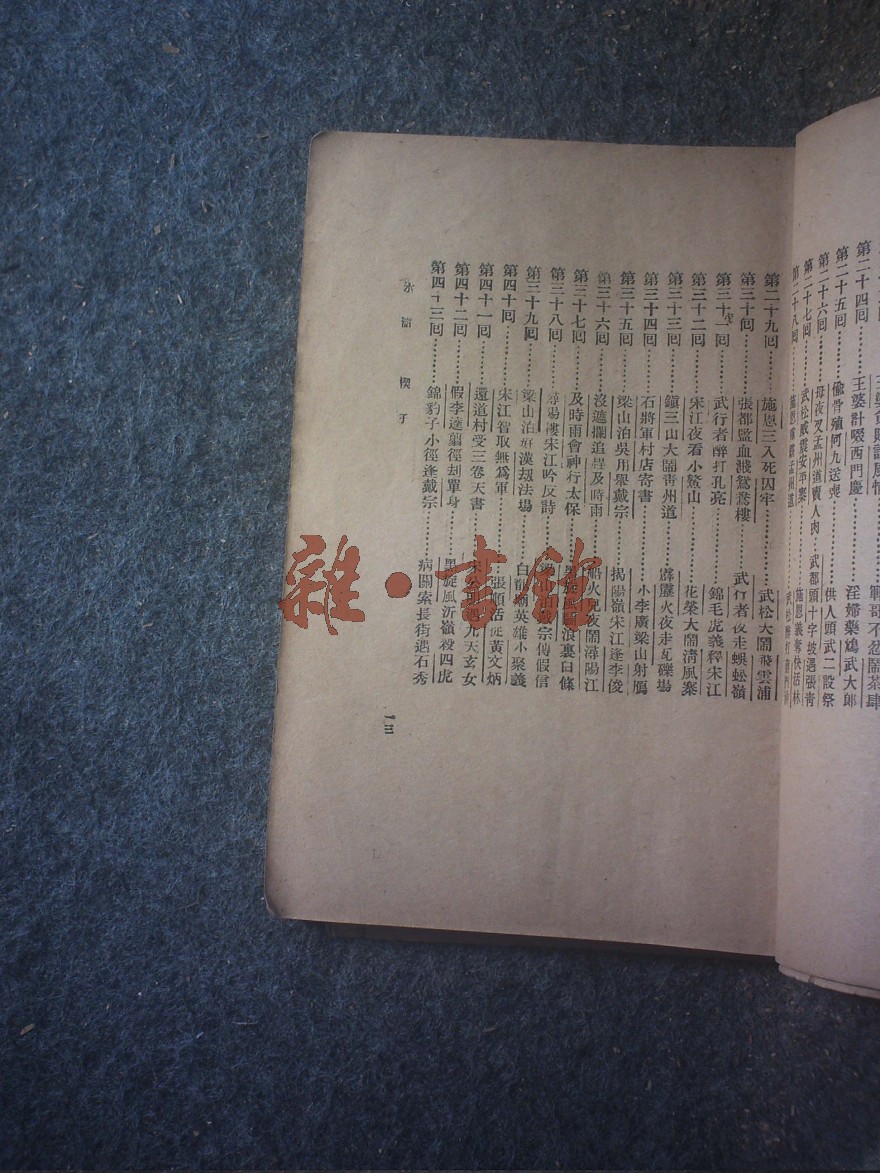 第二十四回 王婆貪賄說風情 鄆哥不忿鬧茶肆
第二十五回 王婆計啜西門慶 淫婦藥鴆武大郎
第二十六回 偷骨殖何九送喪 供人頭武二設祭
第二十七回 母夜叉孟州道賣人肉 武都頭十字坡遇張青
第二十八回 武松威震安平寨 施恩義奪快活林
第二十九回 施恩三入死囚牢 武松大鬧飛雲浦
第三十回 張都監血濺鴛鴦樓 武行者夜走蜈蚣嶺
第三十一回 武行者醉打孔亮 錦毛虎義釋宋江
第三十二回 宋江夜看小鰲山 花榮大鬧淸風寨
第三十三回 鎭三山大鬧靑州道 霹靂火夜走瓦礫場
第三十四回 石將軍村店寄書 小李廣梁山射鴈
第三十五回 梁山泊吳用舉戴宗 揭陽嶺宋江逢李俊
第三十六回 沒遮攔追趕及時雨 船火兒夜鬧潯陽江
第三十七回 及時雨會神行太保 黑旋風鬬浪裏白條
第三十八回 潯陽樓宋江吟反詩 梁山泊戴宗傳假信
第三十九回 梁山泊好漢刼法場 白龍廟英雄小聚義
第四十回 宋江智取無爲軍 張順活捉黃文炳
第四十一回 還道村受三卷天書 宋公明遇九天玄女
第四十二回 假李逵翦徑刦單身 黑旋風沂嶺殺四虎
第四十三回 錦豹子小徑逢戴宗 病關索長街遇石秀
水滸 楔子
一三
雜·書館